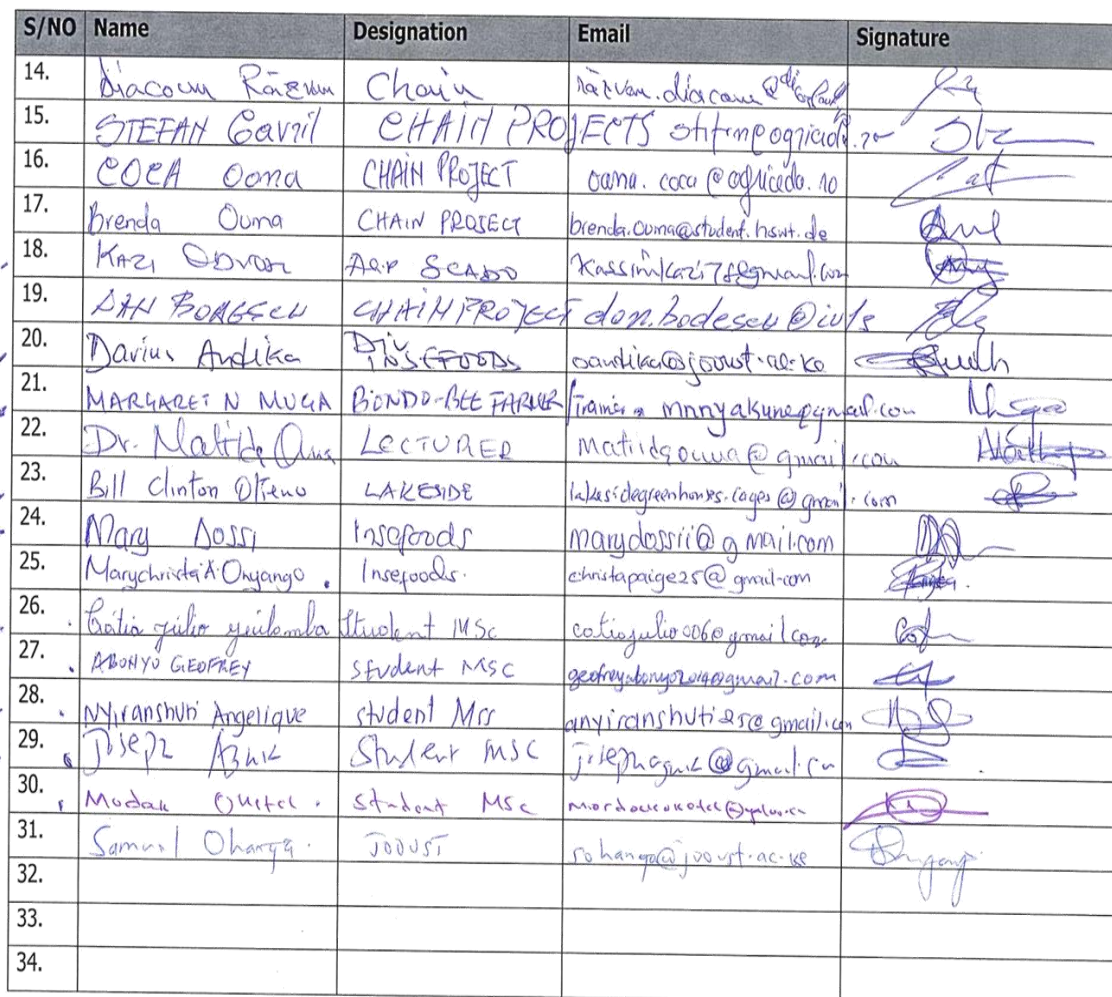 S/NO Name Designation Email Signature
14. Diacour Răzvan Chain
15. STEFAN Gavril CHAIN PROJECTS
16. COCA Oana CHAIN PROJECT oana.coca@agricedo.ro
17. Brenda Ouma CHAIN PROJECT brenda.ouma@student.hswt.de
18. KAZI
19. DAN BODESCU CHAIN PROJECT dan.bodescu@iuls
20. Darius Andika INSEFOODS oandika@jooust.ac.ke
21. MARGARET N MUGA BONDO-BEE FARMER/Trainer mnnyakune@gmail.com
22. Dr. Matilda Ouma LECTURER matildaouma@gmail.com
23. Bill Clinton Otieno LAKESIDE lakesidegreenhouses.cages@gmail.com
24. Mary Dossi Insefoods marydossii@gmail.com
25. Marychrista A. Onyango Insefoods. christapaige25@gmail.com
26. Cátia júlio Student MSc catiajulio006@gmail.com
27. ABONYO GEOFREY student MSC geofreyabonyo2014@gmail.com
28. Nyiranshuti Angelique student Msc anyiranshuti25@gmail.com
29. Joseph Student MSC
30. student MSc
31. Samuel Ohanga. JOOUST sohanga@jooust.ac.ke
32.
33.
34.